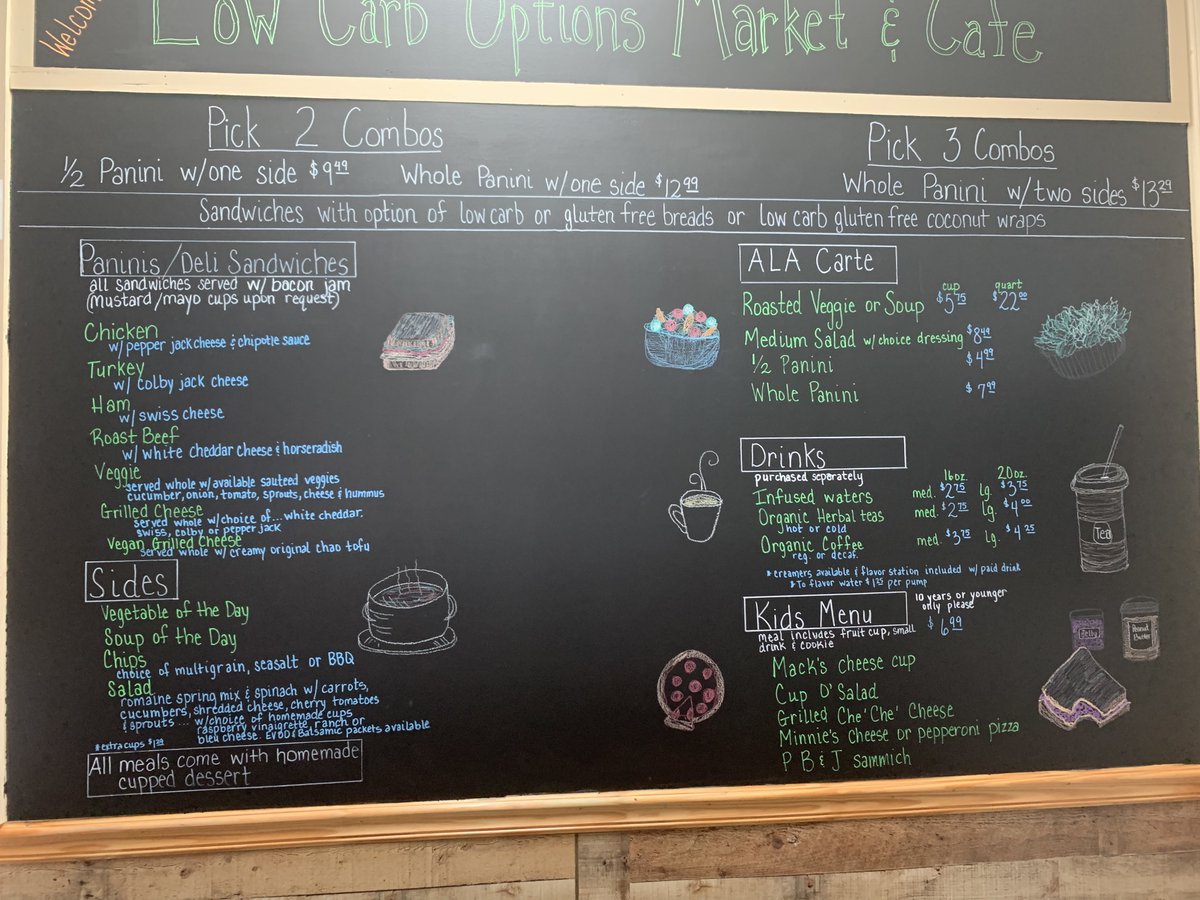 Welcome
Low Carb Options Market & Cafe
Pick 2 Combos
1/2 Panini w/one side $9.49
Whole Panini w/one side $12.99
Pick 3 Combos
Whole Panini w/two sides $13.29
Sandwiches with option of low carb or gluten free breads or low carb gluten free coconut wraps
Paninis/Deli Sandwiches
all sandwiches served w/ bacon jam
(mustard/mayo cups upon request)
Chicken
w/ pepper jack cheese & chipotle sauce
Turkey
w/ colby jack cheese
Ham
w/ swiss cheese
Roast Beef
w/ white cheddar cheese & horseradish
Veggie
served whole w/ available sauteed veggies
cucumber, onion, tomato, sprouts, cheese & hummus
Grilled Cheese
served whole w/choice of... white cheddar.
swiss, colby or pepper jack
Vegan Grilled Cheese
served whole w/ creamy original chao tofu
Sides
Vegetable of the Day
Soup of the Day
Chips
choice of multigrain, seasalt or BBQ
Salad
romaine spring mix & spinach w/ carrots,
cucumbers, shredded cheese, cherry tomatoes
& sprouts... w/choice of homemade cups
raspberry vinaigrette, ranch or
bleu cheese. EVOO & Balsamic packets available
*extra cups
All meals come with homemade
cupped dessert
ALA Carte
cup quart
Roasted Veggie or Soup $5.75 $22.00
Medium Salad w/choice dressing $8.49
1/2 Panini $4.99
Whole Panini $7.99
Drinks
purchased separately
16oz. 20oz.
Infused waters med. $2.75 lg. $3.75
Organic Herbal teas med. $2.75 lg. $4.00
hot or cold
Organic Coffee med. $3.75 lg. $4.25
reg. or decaf.
*creamers available & flavor station included w/ paid drink
*To flavor water $1.25 per pump
Kids Menu
10 years or younger
only please
meal includes fruit cup, small
drink & cookie
$6.99
Mack's cheese cup
Cup O' Salad
Grilled Che' Che' Cheese
Minnie's Cheese or pepperoni pizza
P B & J sammich
Tea
Jelly
Peanut
Butter